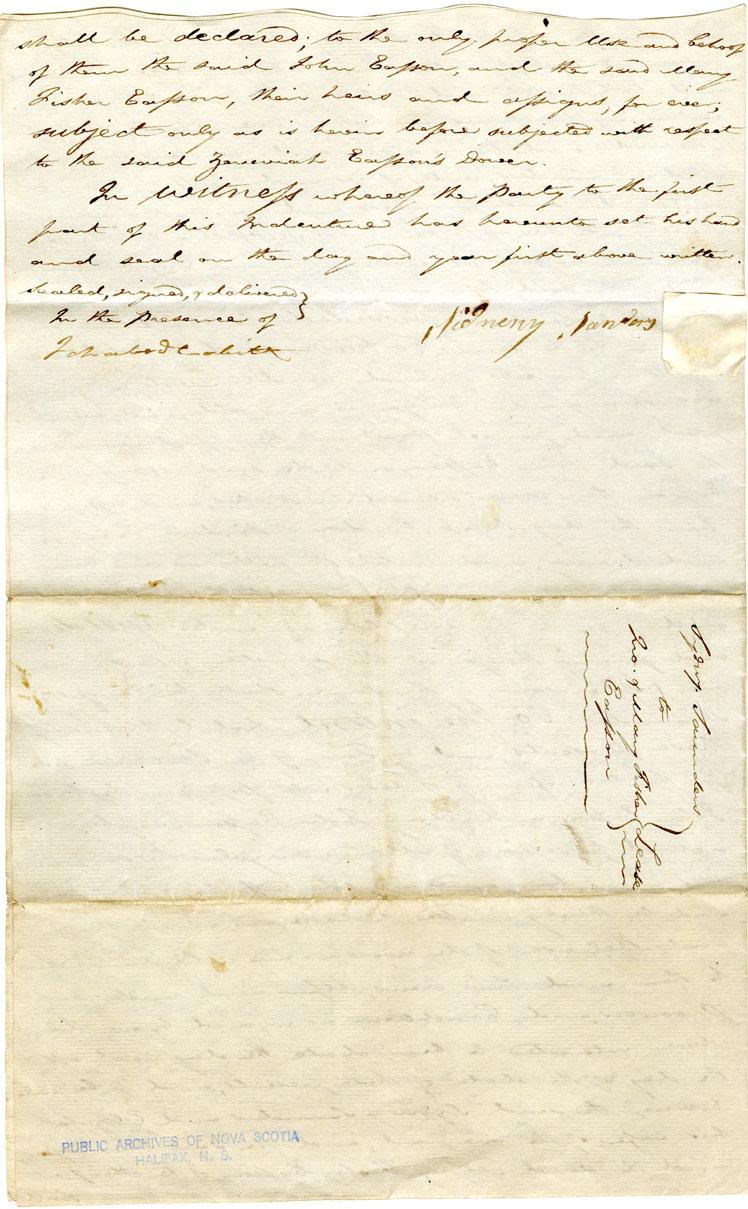 shall be declared; to the only proper Use and behoof
of them the said John Easson, and the said Mary
Fisher Easson, their heirs and assigns, for ever;
subject only as is herein before subjected with respect
to the said Zeremiah Easson's Dower.
In Witness whereof the Party to the first
part of this Indenture has hereunto set his hand
and seal on the day and year first above written.
Sealed, signed, & delivered }
In the Presence of
Sidneny Sanders
Sydny. Saunders
to
Jno. & Mary Fisher } Lease
Easson
PUBLIC ARCHIVES OF NOVA SCOTIA
HALIFAX, N. S.